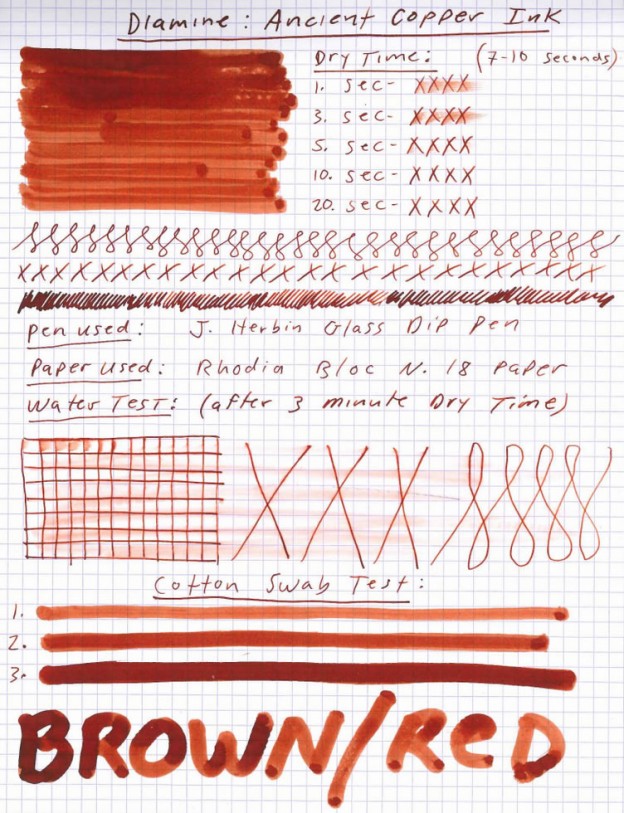 Diamine: Ancient Copper Ink
Dry Time: (7-10 seconds)
1. sec- XXXX
3. sec- XXXX
5. sec- XXXX
10. sec- XXXX
20. sec- XXXX
XXXXXXXXXXXXXXXXXXXXXXXXXXXXXXX
Pen used: J. Herbin Glass Dip Pen
Paper Used: Rhodia Bloc N. 18 Paper
Water Test: (after 3 minute Dry Time)
XXX
Cotton Swab Test:
1.
2.
3.
BROWN/RED